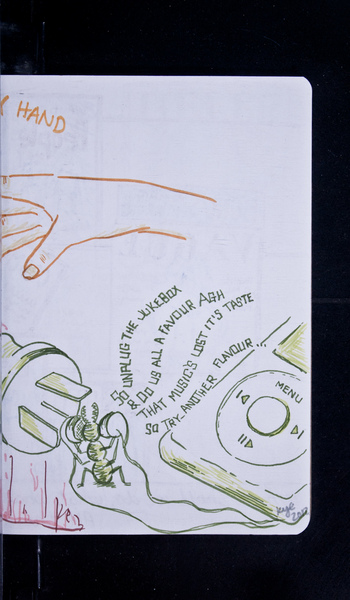 HAND
SO UNPLUG THE JUKEBOX
& DO US ALL A FAVOUR AGH
THAT MUSIC'S LOST IT'S TASTE
SO TRY ANOTHER FLAVOUR...
MENU